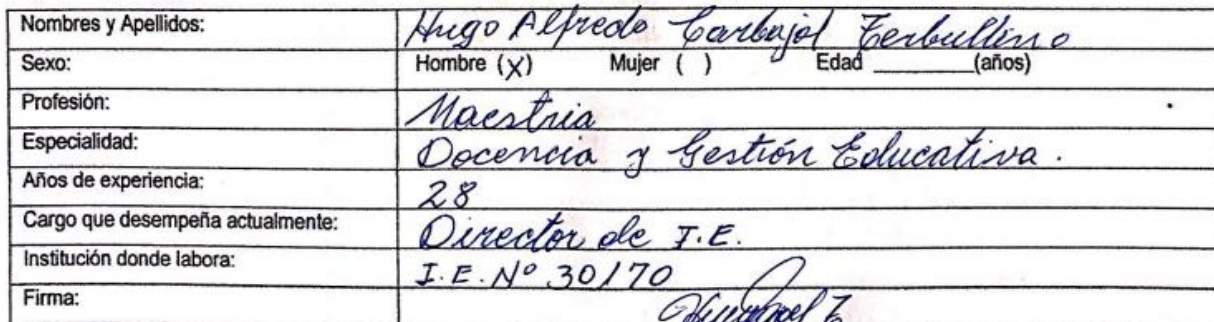 Nombres y Apellidos: Hugo Alfredo Carbajal
Sexo: Hombre (X) Mujer ( ) Edad ________(años)
Profesión: Maestria
Especialidad: Docencia y Gestión Educativa.
Años de experiencia: 28
Cargo que desempeña actualmente: Director de I.E.
Institución donde labora: I.E. Nº 30170
Firma: